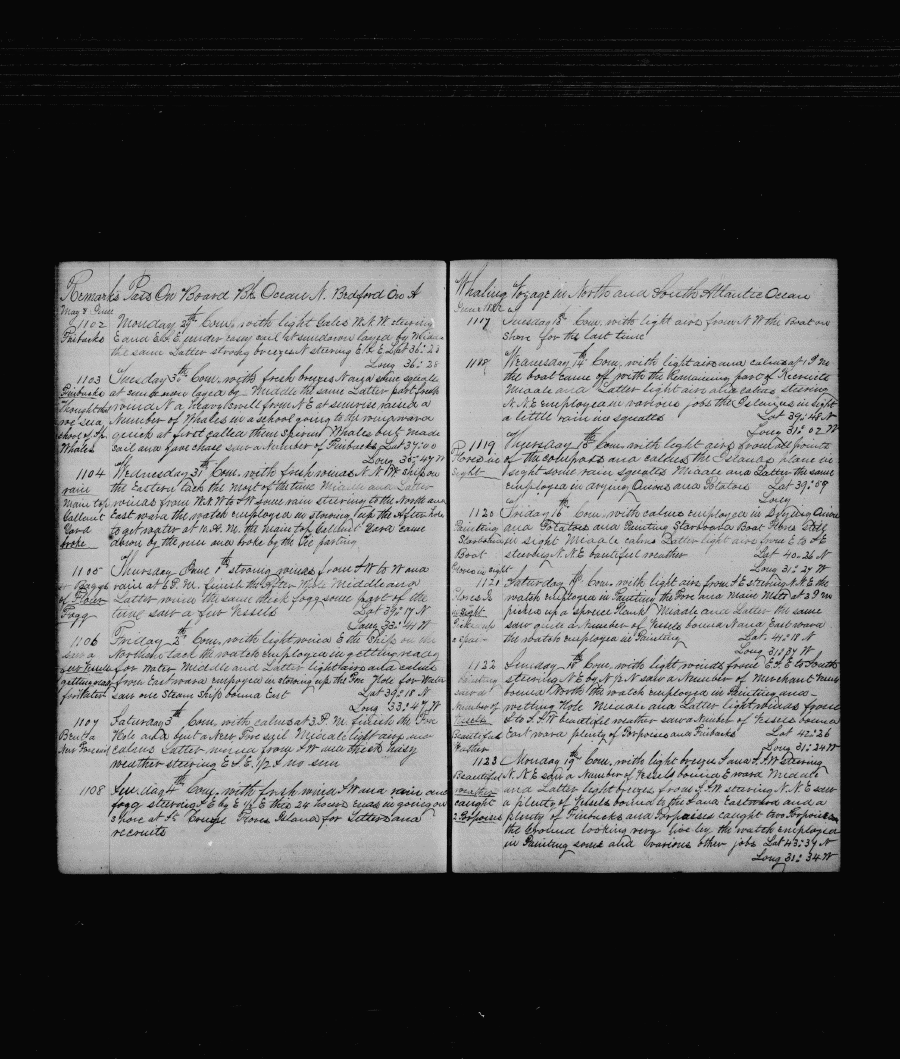 Remarks Pass On Board Bk Ocean N. Bedford On A
May & June
1102 Monday 29th Com. with light Gales W.N.W steering
Finbacks E and E by S under easy sail at sundown layed by Middle
the same Latter strong breezes N steering E by S Lat 36:23
Long 36:28
1103 Tuesday 30th Com. with fresh breezes N and some squalls
Finbacks at sundown layed by Middle the same Latter part fresh
Thought that wind N a heavy swell from N E at sunrise raised a
we saw Number of Whales in a school going to the windward
shoal of Sp quick at first called them Sperm Whales but made
Whales sail and gave chase saw a Number of Finbacks Lat 37:00
Long 35:47 W
1104 Wednesday 31st Com. with fresh winds N.N.W Ship on
rain the Eastern tack the most of the time Middle and Latter
Main top winds from W.N.W to S W some rain steering to the North and
Gallent East ward the watch employed in stowing up the After hole
Yard to get water at 10 A.M. the main top Gallent Yard came
broke down by the run and broke by the Tie parting
1105 Thursday June 1st strong winds from S W to W and
rain at 6 P.M. finish the After Hole Middle and
of Flour Latter wind the same thick fogg some part of the
Fogg time saw a few Vessels Lat 39:17 N
Long 33:41 W
1106 Friday 2nd Com. with light wind E the Ship on the
saw a Northern tack the watch employed in getting ready
few Vessels for water Middle and Latter light airs and calms
getting ready from Eastward employed in stowing up the Fore Hole for Water
for water saw one Steam Ship bound East Lat 39:18 N
Long 33:47 W
1107 Saturday 3rd Com. with calms at 3 P.M. finish the Fore
Bent a Hole and bent a New Fore sail Middle light airs and
New Foresail calms Latter wind from S W and thick hazy
weather steering E S E 1/2 S no sun
1108 Sunday 4th Com. with fresh wind S W and rain and
fogg steering S E by E 1/2 E this 24 hours ends in going on
shore at Flores Island for Letters and
recruits
Whaling Voyage in North and South Atlantic Ocean
June
1117 Tuesday 13th Com. with light airs from N W the Boat on
Shore for the last time
1118 Wednesday 14th Com. with light airs and calms at 1 P.M
the boat came off with the Remaining part of Recruits
Middle and Latter light airs and calms steering
N.N.E employed in various jobs the Islands in sight
a little rain in squalls Lat 39:48 N
Long 31:02 W
1119 Thursday 15th Com. with light airs from all points
Flores in of the compass and calms the Islands plane in
sight sight some rain squalls Middle and Latter the same
employed in drying Onions and Potatoes Lat 39:59
Long
1120 Friday 16th Com. with calms employed in drying Onions
Painting and Potatoes and Painting Starboard Boat Flores still
Starboard in sight Middle calms Latter light airs from E to S E
Boat steering N.N.E beautiful weather Lat 40:26 N
Flores in sight Long 31:27 W
1121 Saturday 17th Com. with light airs from S E steering N.N.E the
Flores Is watch employed in Painting the Fore and Main Mast at 3 P.M
in sight picked up a Spruce Plank Middle and Latter the same
Picked up saw quite a Number of Vessels bound N and East ward
a spar the watch employed in Painting Lat 41:18 N
Long 31:37 W
1122 Sunday 18th Com. with light winds from E.S.E to South
Painting steering N E by N 1/2 N saw a Number of Merchant Vessels
saw a bound North the watch employed in Painting and
Number of wetting Hole Middle and Latter light winds from
Vessels S to S.S.W beautiful weather saw a Number of Vessels bound
Beautiful East ward plenty of Porpoises and Finbacks Lat 42:26
Weather Long 31:24 W
1123 Monday 19th Com. with light breezes S and S.S.W steering
Beautiful N.N.E saw a Number of Vessels bound E ward Middle
weather and Latter light breezes from S.S.W steering N.N.E saw
caught a plenty of Vessels bound to the S and Eastward and a
2 Porpoises plenty of Finbacks and Porpoises caught two Porpoises
the Ground looking very live ley the watch employed
in Painting some and various other jobs Lat 43:39 N
Long 31:34 W